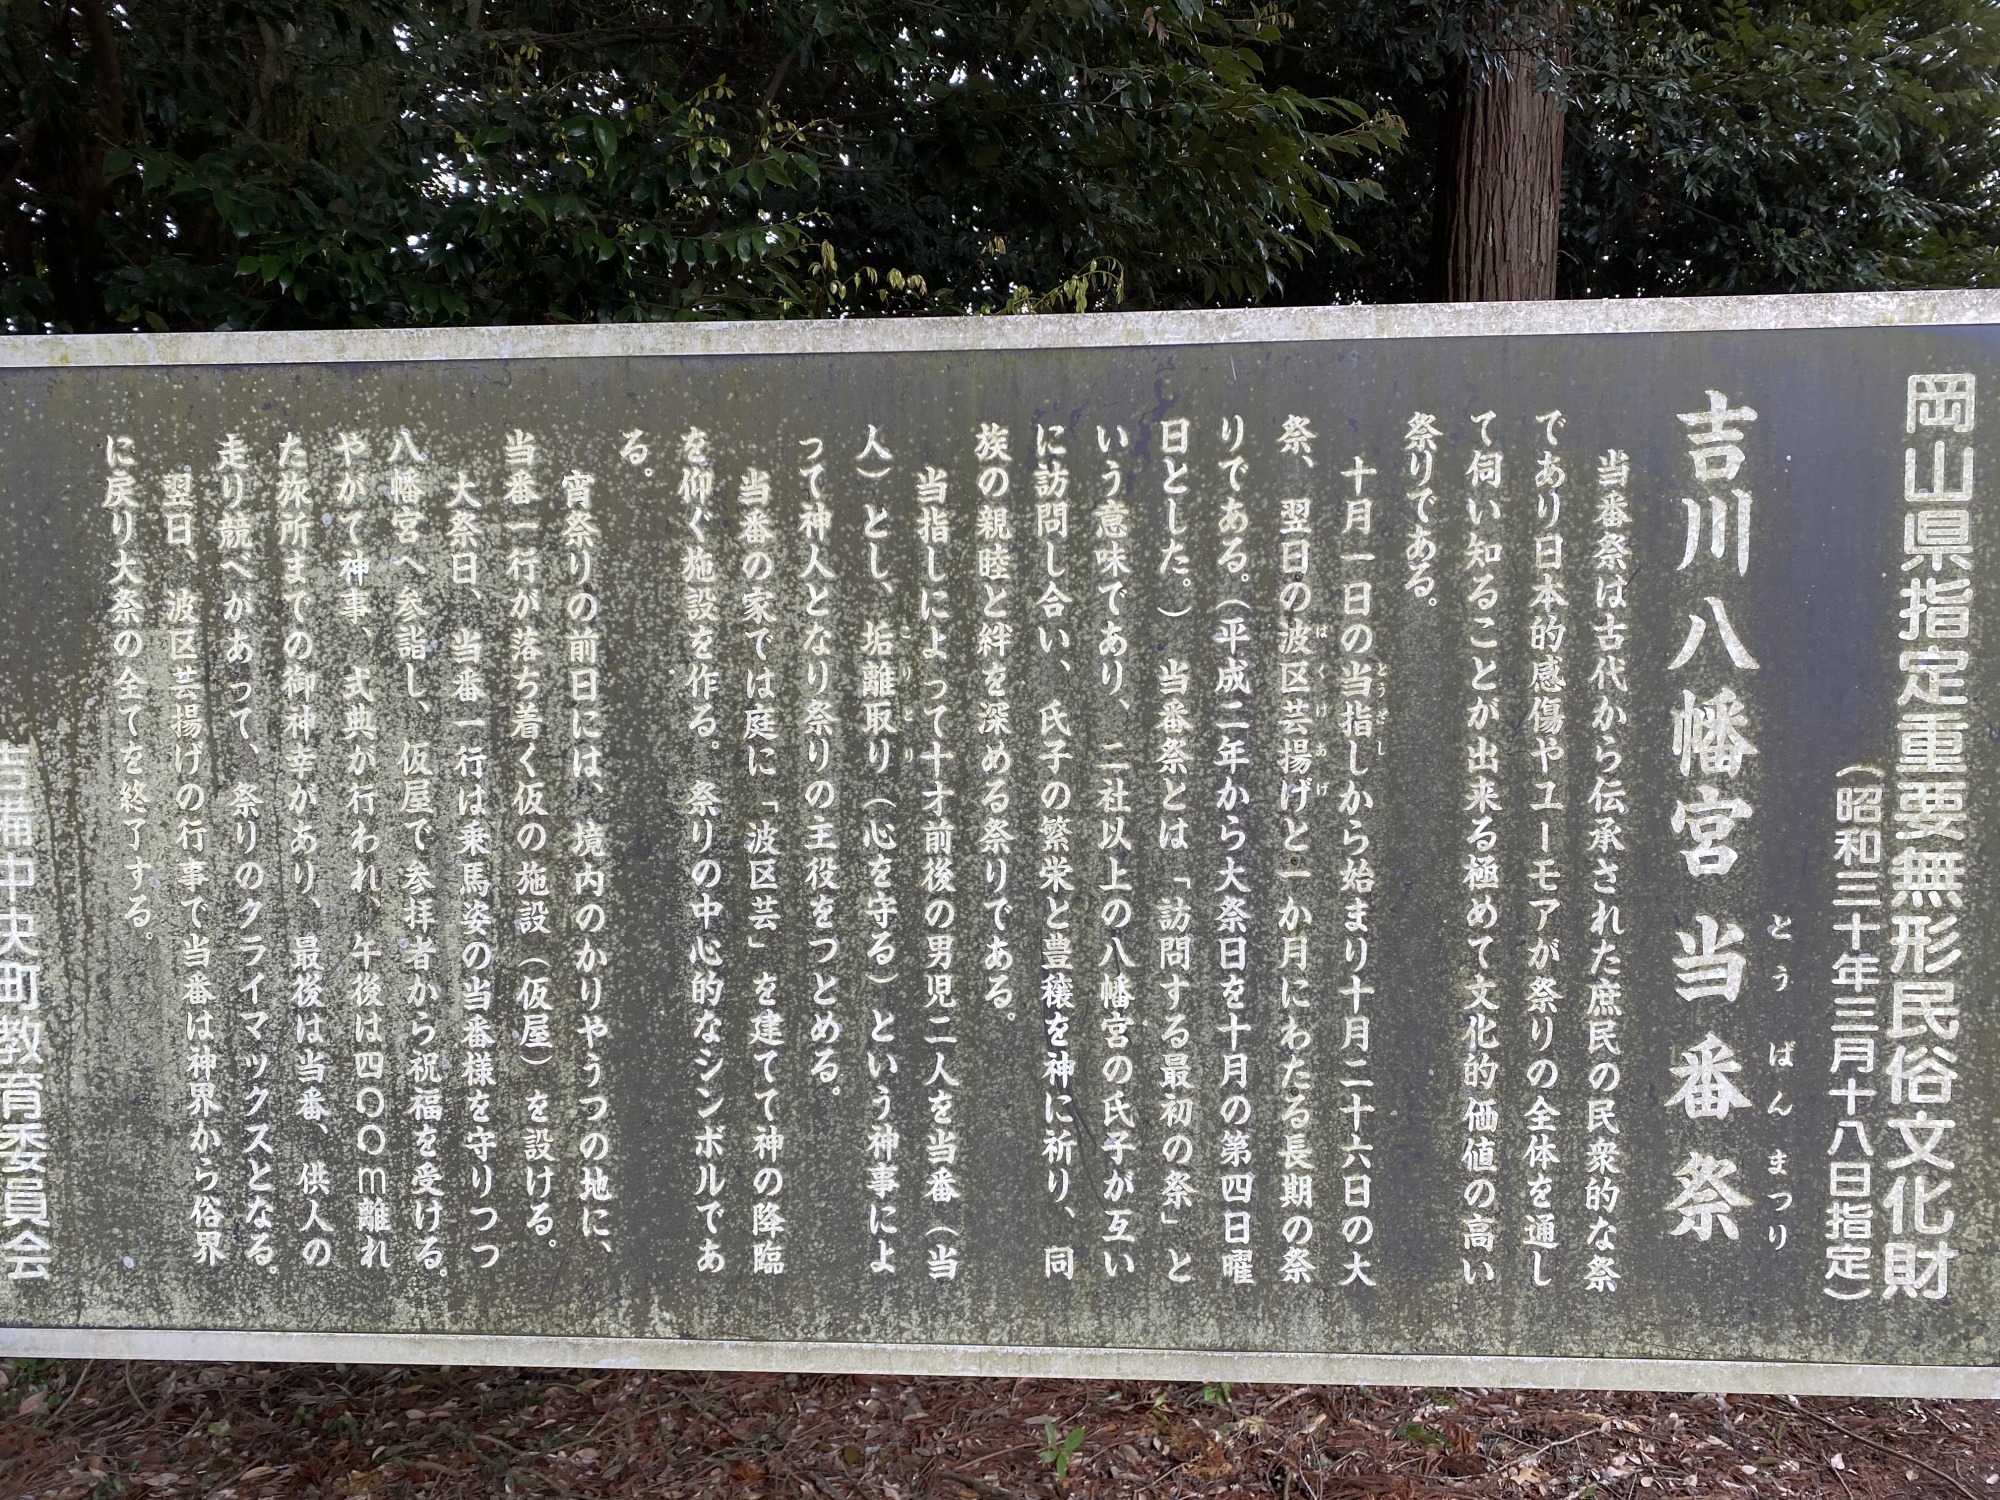 岡山県指定重要無形民俗文化財
（昭和三十年三月十八日指定）
吉川八幡宮当番祭
とうばんまつり
当番祭は古代から伝承された庶民の民衆的な祭
であり日本的感傷やユーモアが祭りの全体を通し
て伺い知ることが出来る極めて文化的価値の高い
祭りである。
十月一日の当指しから始まり十月二十六日の大
とうざし
祭、翌日の波区芸揚げと一か月にわたる長期の祭
はくげあげ
りである。（平成二年から大祭日を十月の第四日曜
日とした。）当番祭とは「訪問する最初の祭」と
いう意味であり、二社以上の八幡宮の氏子が互い
に訪問し合い、氏子の繁栄と豊穣を神に祈り、同
族の親睦と絆を深める祭りである。
当指しによって十才前後の男児二人を当番（当
人）とし、垢離取り（心を守る）という神事によ
こりとり
って神人となり祭りの主役をつとめる。
当番の家では庭に「波区芸」を建てて神の降臨
を仰ぐ施設を作る。祭りの中心的なシンボルであ
る。
宵祭りの前日には、境内のかりやうつの地に、
当番一行が落ち着く仮の施設（仮屋）を設ける。
大祭日、当番一行は乗馬姿の当番様を守りつつ
八幡宮へ参詣し、仮屋で参拝者から祝福を受ける。
やがて神事、式典が行われ、午後は四〇〇ｍ離れ
た旅所までの御神幸があり、最後は当番、供人の
走り競べがあって、祭りのクライマックスとなる。
翌日、波区芸揚げの行事で当番は神界から俗界
に戻り大祭の全てを終了する。
吉備中央町教育委員会